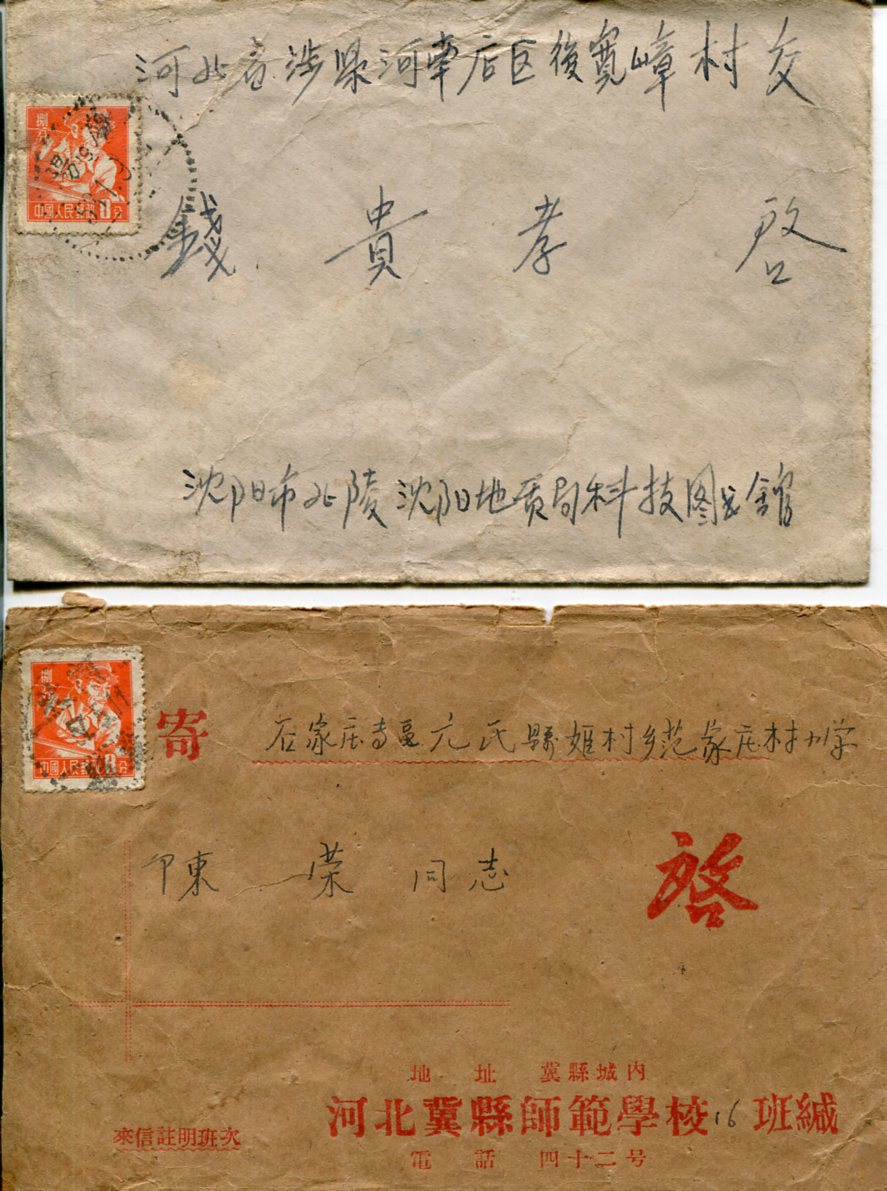 河北省涉県河南店区後寬嶂村交
捌分
中國人民郵政8分
錢貴孝啓
沈阳市北陵沈阳地质局科技图书館
捌分
中國人民郵政8分
寄
石家庄专區元氏縣姬村乡范家庄村小学
陳荣同志
啓
地址 冀縣城内
河北冀縣師範學校16班緘
來信註明班次
電話 四十二号